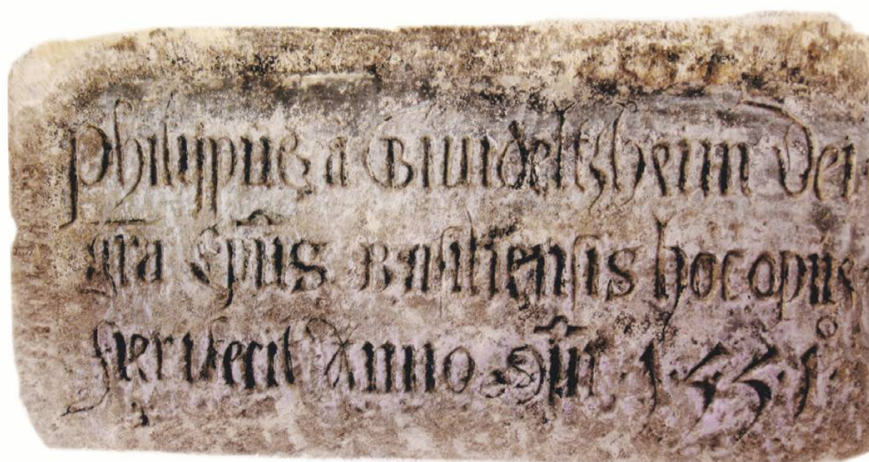 philippus a Gundeltzheim Dei
gra Epus Basiliensis hoc opus
fieri fecit Anno Dni 1531